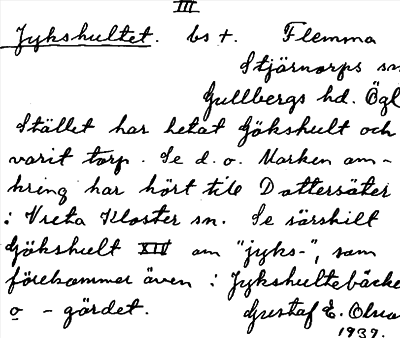 III
Jykshultet. bst. Flemma
Stjärnorps sn
Gullbergs hd. Ögl
Stället har hetat Gökshult och
varit torp. Se d. o. Marken om-
kring har hört till Dottersäter
i Vreta Kloster sn. Se särskilt
Gökshult XIV om "jyks-", som
förekommer även i Jykshultebäcke
o - gärdet. Gustaf E. Olsso
1939.